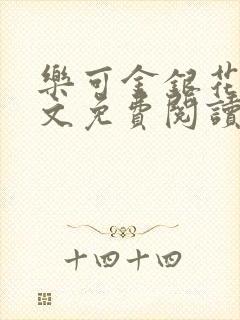 樂可金銀花
文免費閱讀
十四十四